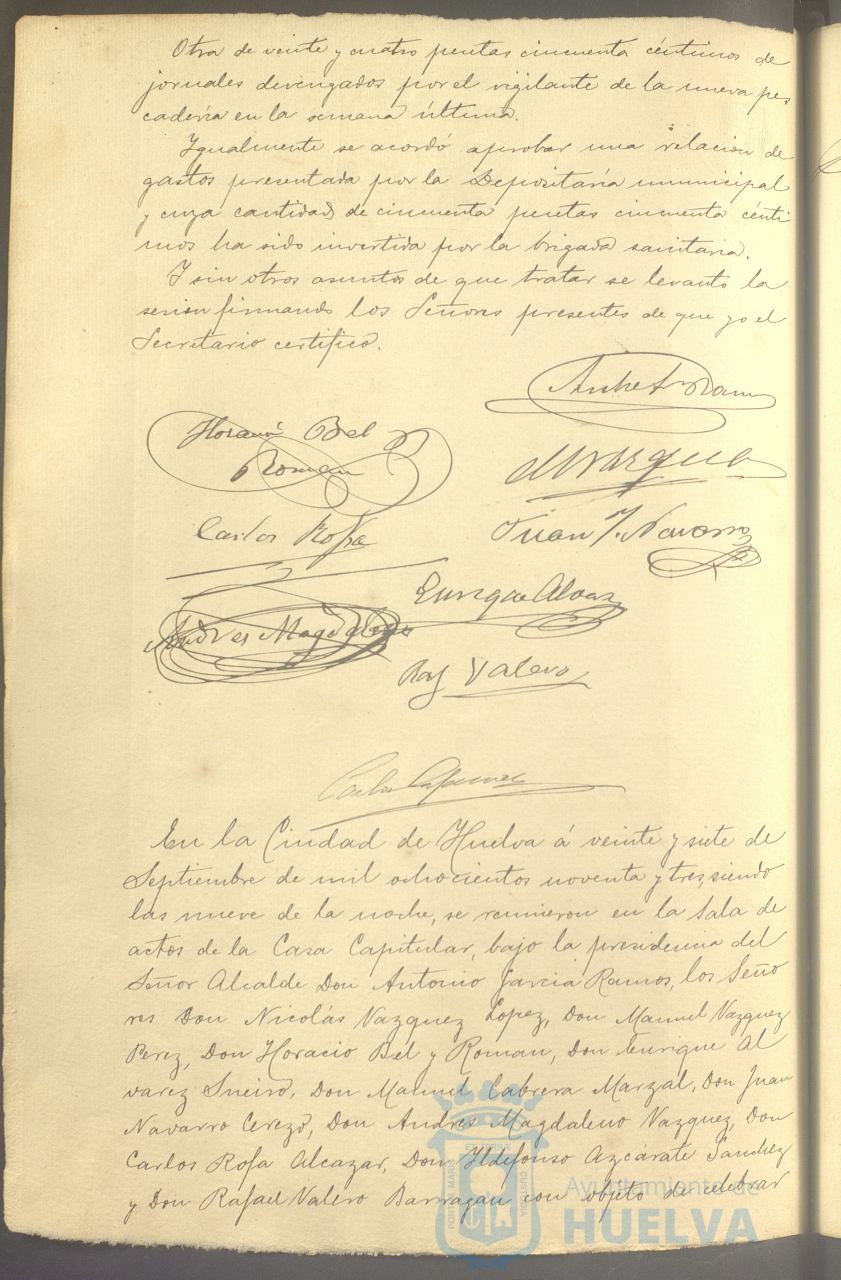 Otra de veinte y cuatro pesetas cincuenta céntimos de
jornales devengados por el vigilante de la nueva pes
cadería en la semana última.
Igualmente se acordó aprobar una relación de
gastos presentada por la Depositaría municipal
y cuya cantidad de cincuenta pesetas cincuenta cénti
mos ha sido invertida por la brigada sanitaria.
Y sin otros asuntos de que tratar se levanto la
sesion firmando los Señores presentes de que yo el
Secretario certifico.
Horacio Bel
Roman
M Vazquez
Carlos Rofa
Juan J. Navarro
Enrique Alvarez
Andres Magdaleno
Raf Valero
En la Ciudad de Huelva á veinte y siete de
Septiembre de mil ochocientos noventa y tres, siendo
las nueve de la noche, se reunieron en la Sala de
actos de la Casa Capitular, bajo la presidencia del
Señor Alcalde Don Antonio Garcia Ramos, los Seño
res Don Nicolás Vazquez Lopez, Don Manuel Vazquez
Perez, Don Horacio Bel y Roman, Don Enrique Al
varez Sneiro, Don Manuel Cabrera Marzal, Don Juan
Navarro Cerezo, Don Andres Magdaleno Vazquez, Don
Carlos Rofa Alcazar, Don Ildefonso Azcárate Sanchez
y Don Rafael Valero Barragan con objeto de celebrar
PORTUS MARIS
ET TERRÆ
CUSTODIA
Ayuntamiento de
HUELVA